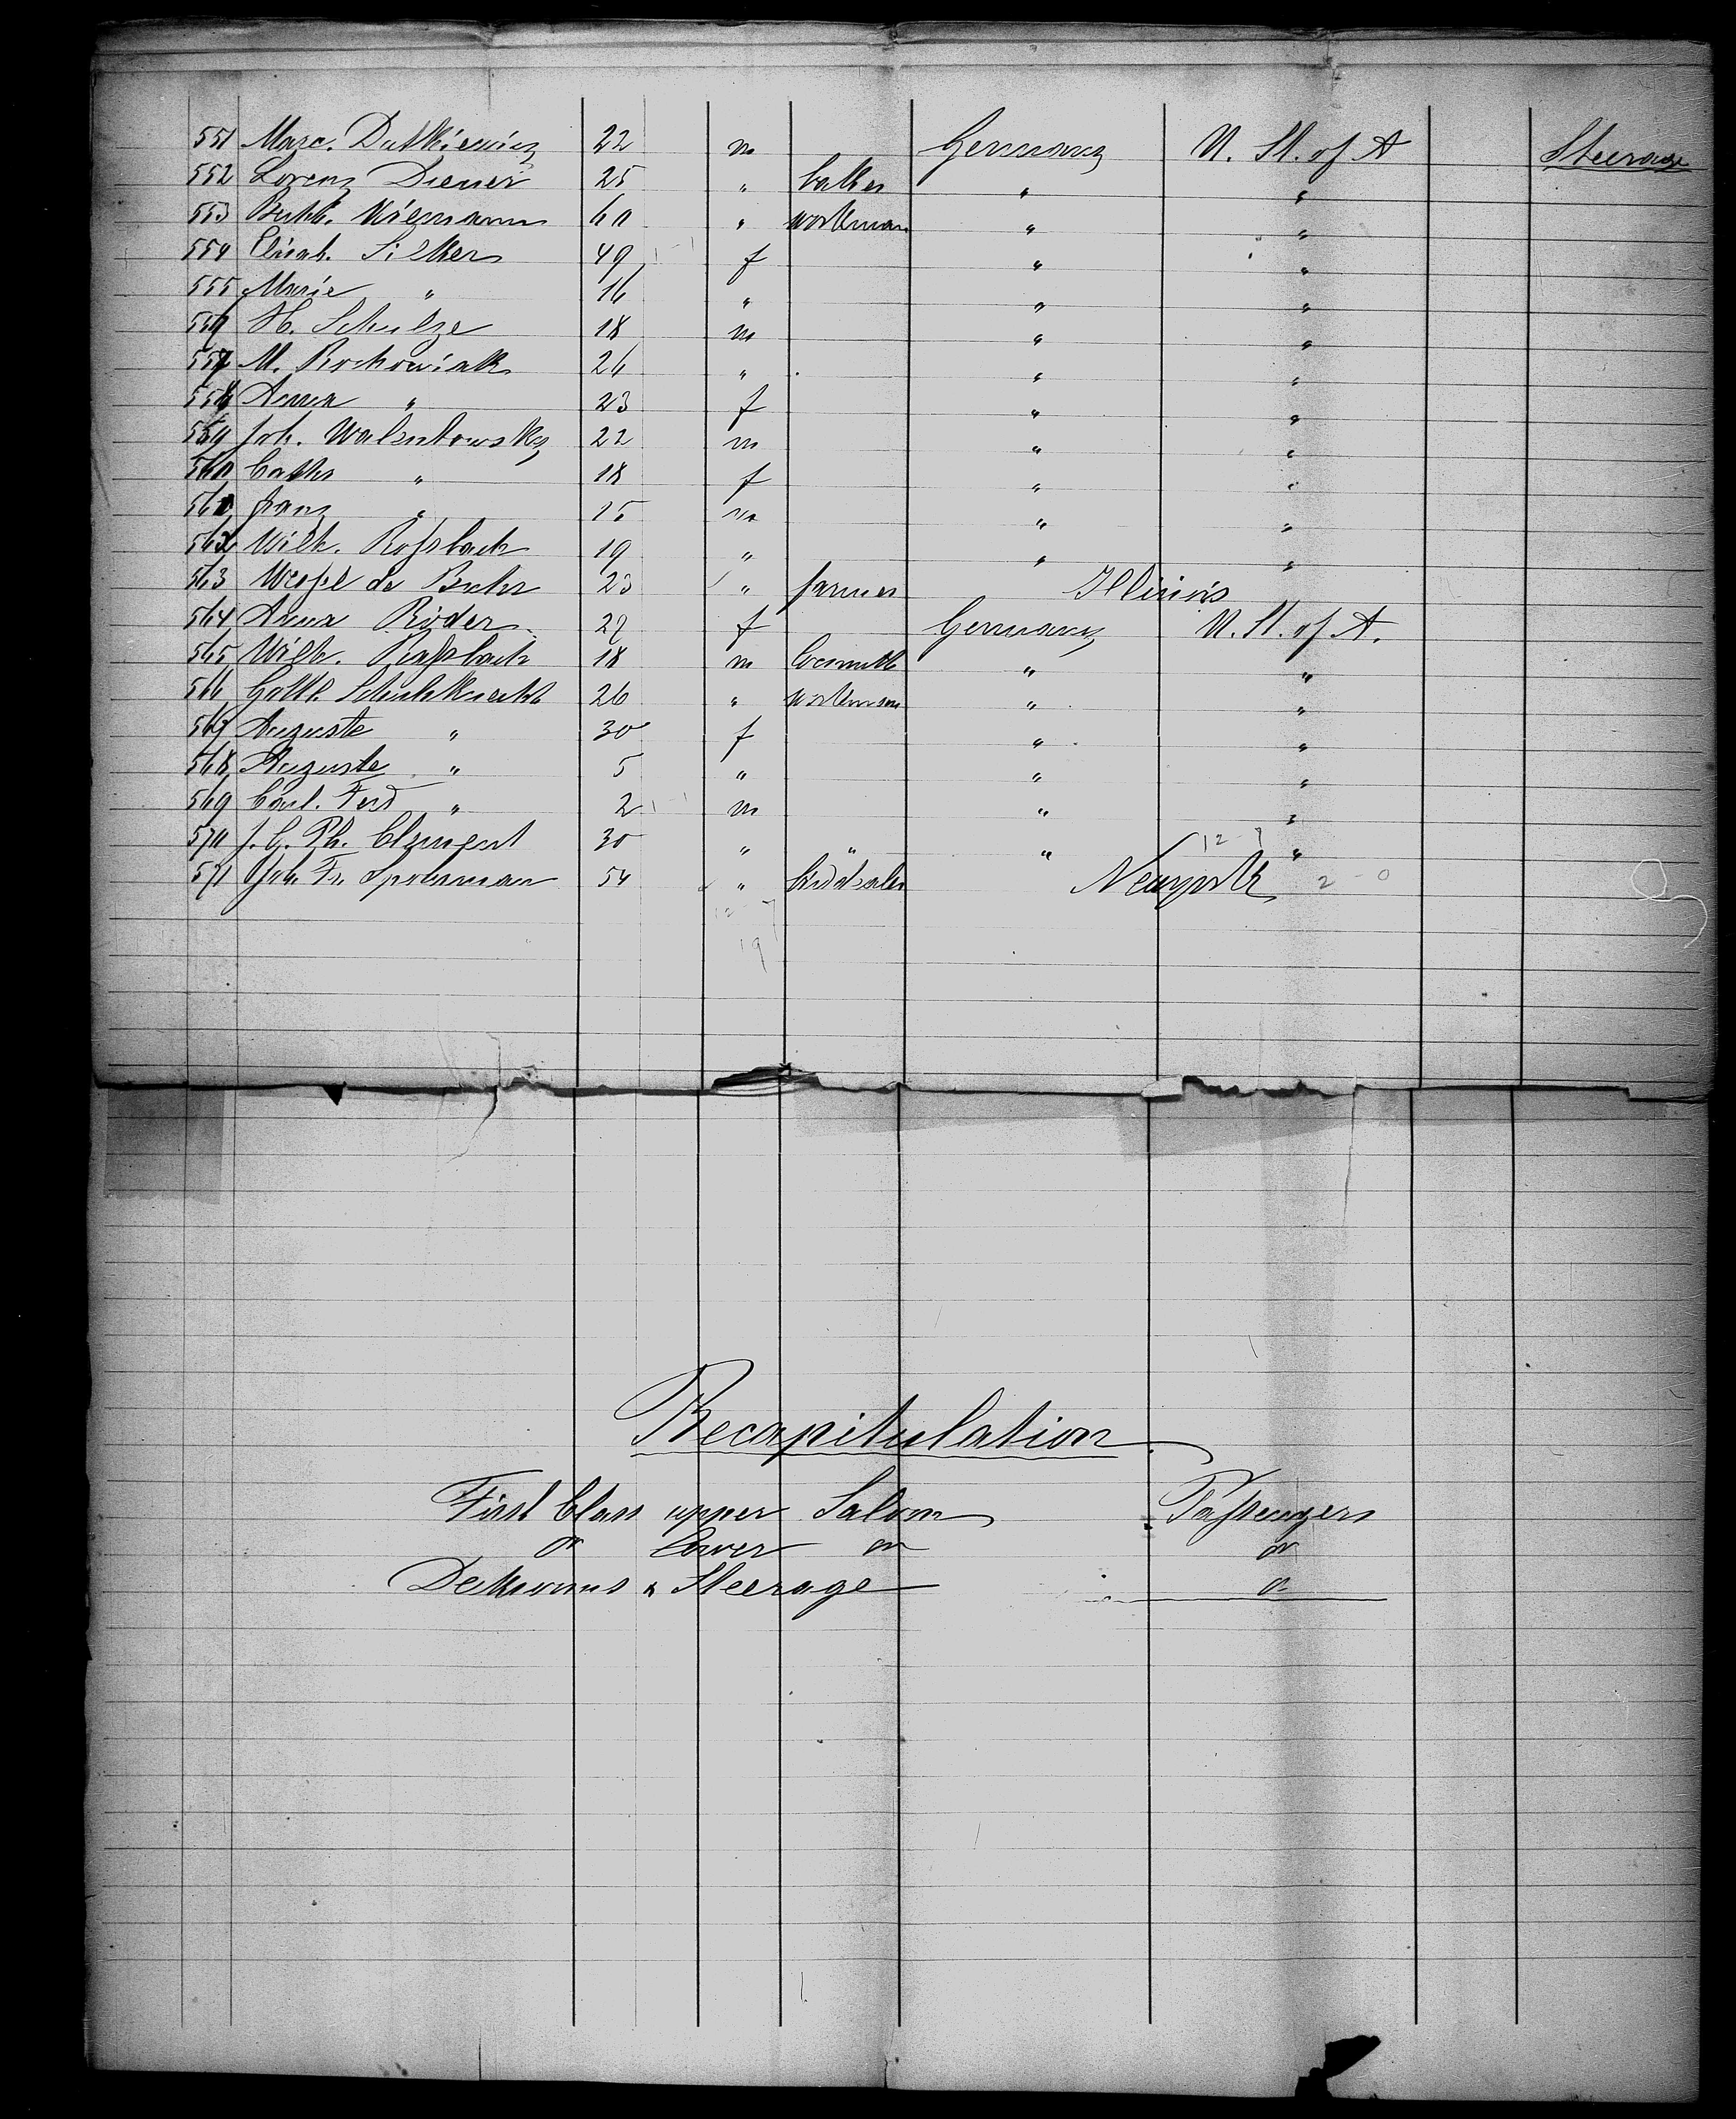 551 Marc. Dutkiewicz 22 m Germany U. St. of A Steerage
552 Lorenz Diener 25 " " "
553 Berth. 60 " workman " "
554 Elisab. Silker 49 f " "
555 Marie " 16 " " "
H. Schulze 18 m " "
557 M. Rochowiak 26 " " "
558 Anna " 23 f " "
559 Joh. Walentowsky 22 m " "
560 Cath. " 18 f " "
561 Franz " 15 m " "
562 Wilh. Roßbach 19 " " "
563 de Buhr 23 " farmer Illinois
564 Anna Röder 29 f Germany U. St. of A.
565 Wilh. Roßbach 18 m " "
566 Gottl. Schuhknecht 26 " workman " "
567 Auguste " 30 f " "
568 Auguste " 5 " " "
569 Carl. Ferd " 2 m " "
570 J. G. Ph. Clement 30 " " " "
12-7
571 Joh. Fr. 54 " Newyork 2-0
12-7
19
Recapitulation
First Class upper Saloon Passengers
" lower " "
Deckrooms & Steerage "